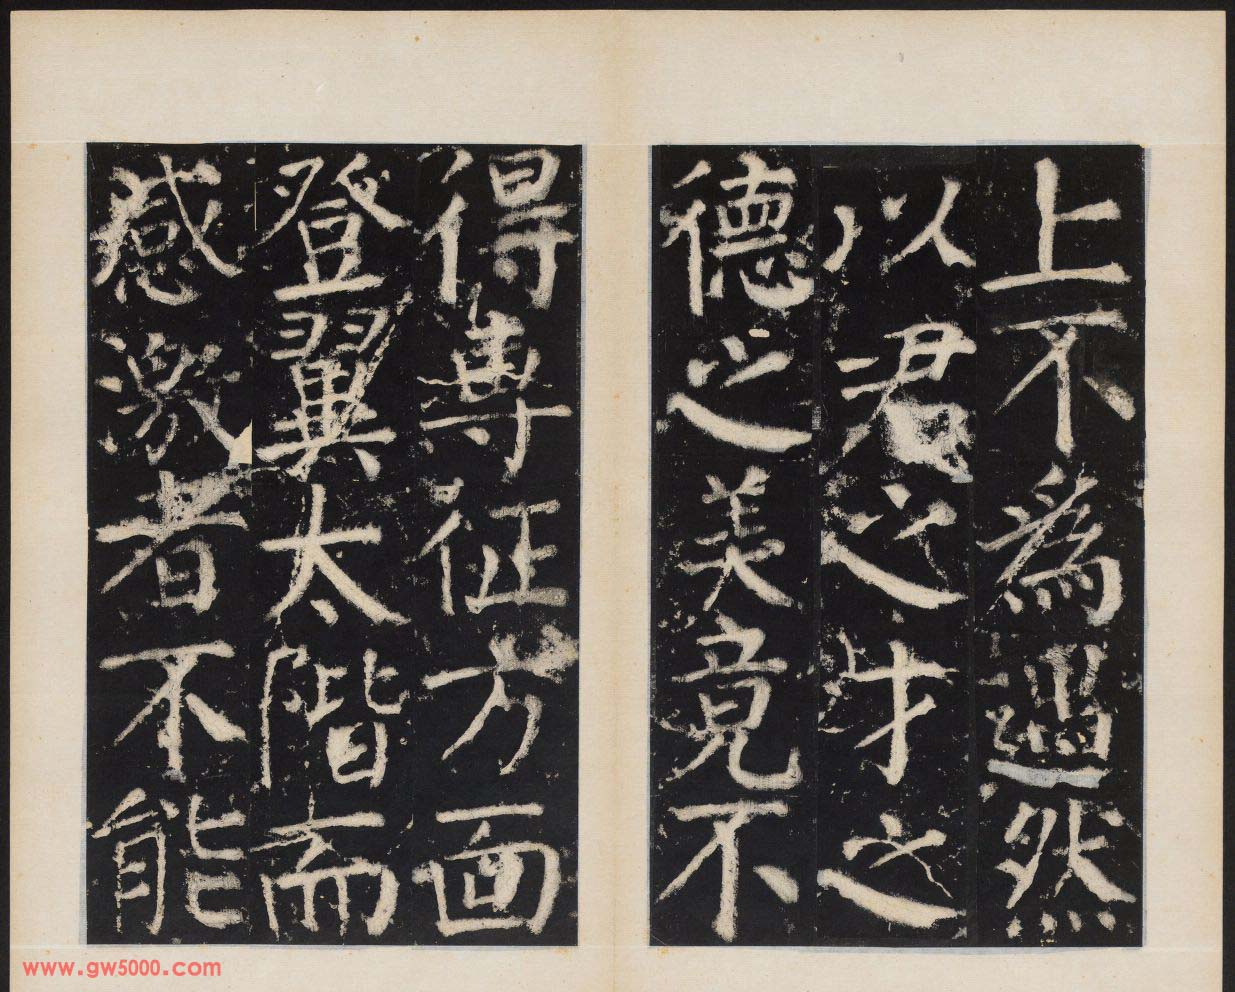 上不為過然
以君之才之
德之美竟不
得專征方面
登翼太階而
感激者不能
www.gw5000.com